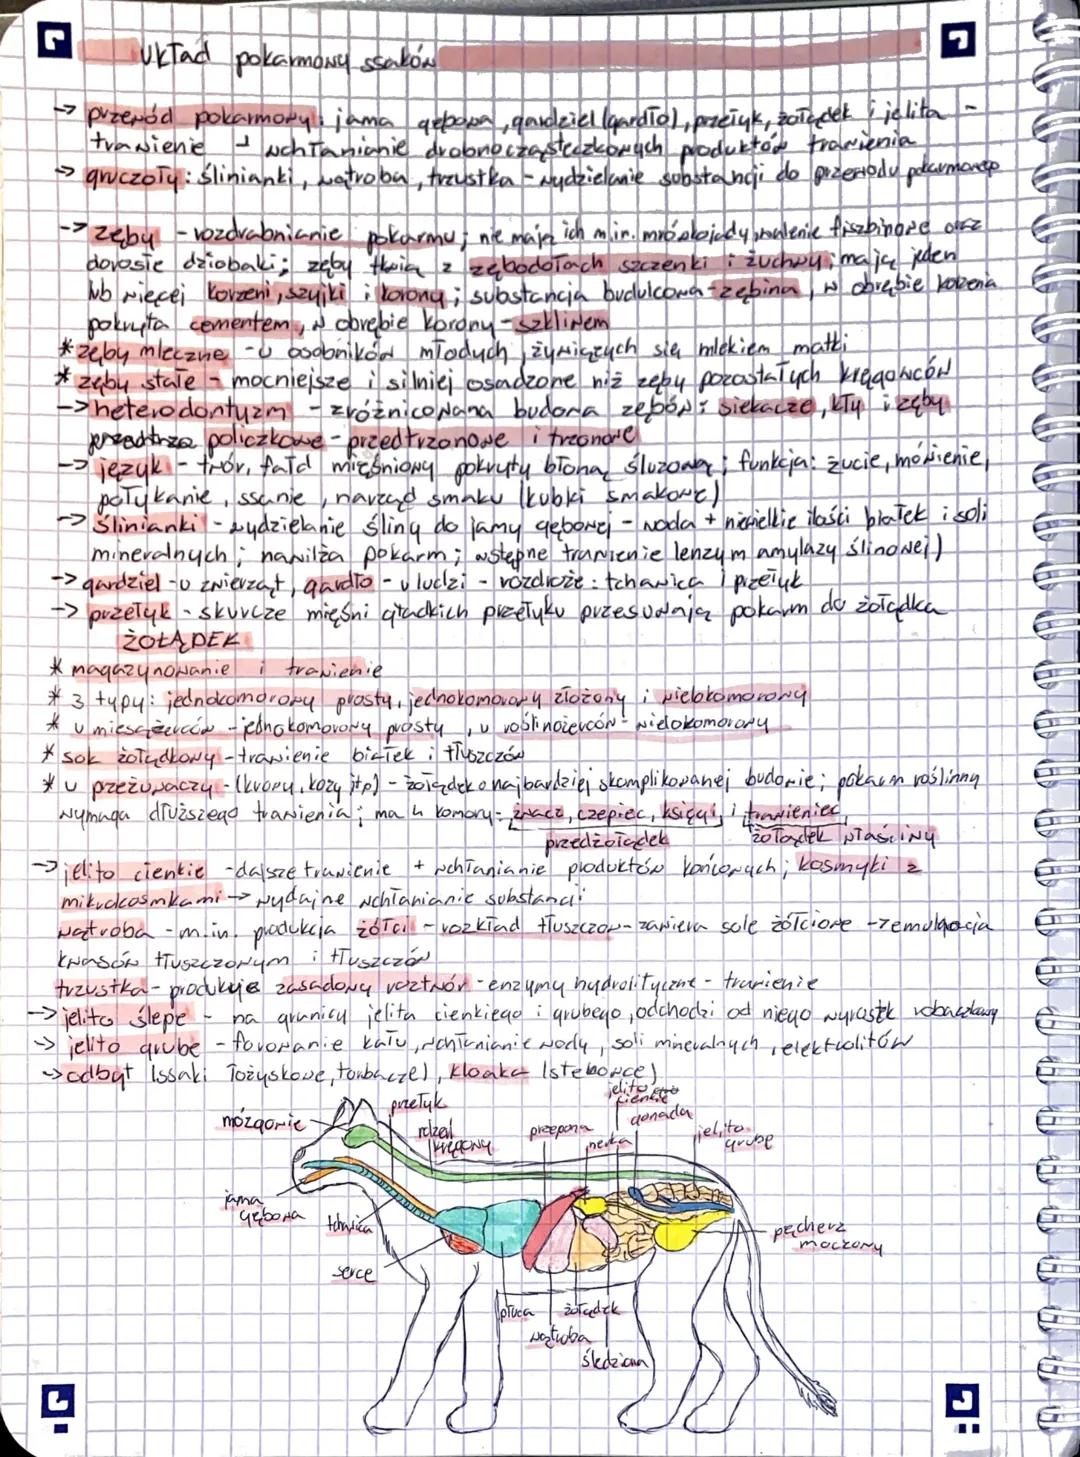 Układ pokarmowy ssaków
-> przewód pokarmowy: jama gębowa, gardziel (gardło), przełyk, żołądek i jelita -
trawienie i wchłanianie drobnocząsteczkowych produktów trawienia
-> gruczoły: ślinianki, wątroba, trzustka - wydzielanie substancji do przewodu pokarmowego
-> zęby - rozdrabnianie pokarmu; nie mają ich m.in. mrówkojady, walenie fiszbinowe oraz
dorosłe dziobaki; zęby tkwią z zębodołach szczenki i żuchwy; mają jeden
lub więcej korzeni, szyjki i koronę; substancja budulcowa - zębina, w obrębie korzenia
pokryta cementem, w obrębie korony - szkliwem
* zęby mleczne - u osobników młodych, żywiących się mlekiem matki
* zęby stałe - mocniejsze i silniej osadzone niż zęby pozostałych kręgowców
-> heterodontyzm - zróżnicowana budowa zębów: siekacze, kły i zęby
policzkowe - przedtrzonowe i trzonowe
-> język - twór, fałd mięśniowy pokryty błoną śluzową; funkcja: żucie, mówienie,
połykanie, ssanie, narząd smaku (kubki smakowe)
-> ślinianki - wydzielanie śliny do jamy gębowej - woda + niewielkie ilości białek i soli
mineralnych; nawilża pokarm; wstępne trawienie (enzym amylazy ślinowej)
-> gardziel - u zwierząt, gardło - u ludzi - rozdroże: tchawica i przełyk
-> przełyk - skurcze mięśni gładkich przełyku przesuwają pokarm do żołądka
ŻOŁĄDEK
* magazynowanie i trawienie
* 3 typy: jednokomorowy prosty, jednokomorowy złożony i wielokomorowy
* u mięsożerców - jednokomorowy prosty, u roślinożerców - wielokomorowy
* sok żołądkowy - trawienie białek i tłuszczów
* u przeżuwaczy - (krowy, kozy itp) - żołądek o najbardziej skomplikowanej budowie; pokarm roślinny
wymaga dłuższego trawienia; ma 4 komory: żwacz, czepiec, księgi i trawieniec
przedżołądek żołądek właściwy
-> jelito cienkie - dalsze trawienie + wchłanianie produktów końcowych; kosmyki z
mikrokosmkami -> wydajne wchłanianie substancji
wątroba - m.in. produkcja żółci - rozkład tłuszczów - zawiera sole żółciowe
kwasów tłuszczowym i tłuszczów
trzustka - produkuje zasadowy roztwór - enzymy hydrolityczne - trawienie
-> jelito ślepe - na granicy jelita cienkiego i grubego, odchodzi od niego wyrostek robaczkowy
-> jelito grube - formowanie kału, wchłanianie wody, soli mineralnych, elektrolitów
-> odbyt (ssaki łożyskowe, torbacze), kloaka (stekowce)
jelito
cienkie
mózgowie
przełyk
rdzeń
kręgowy
przepona
nerka
gonada
jelito
grube
jama
gębowa
tchawica
pęcherz
moczowy
serce
płuca
żołądek
wątroba
śledziona